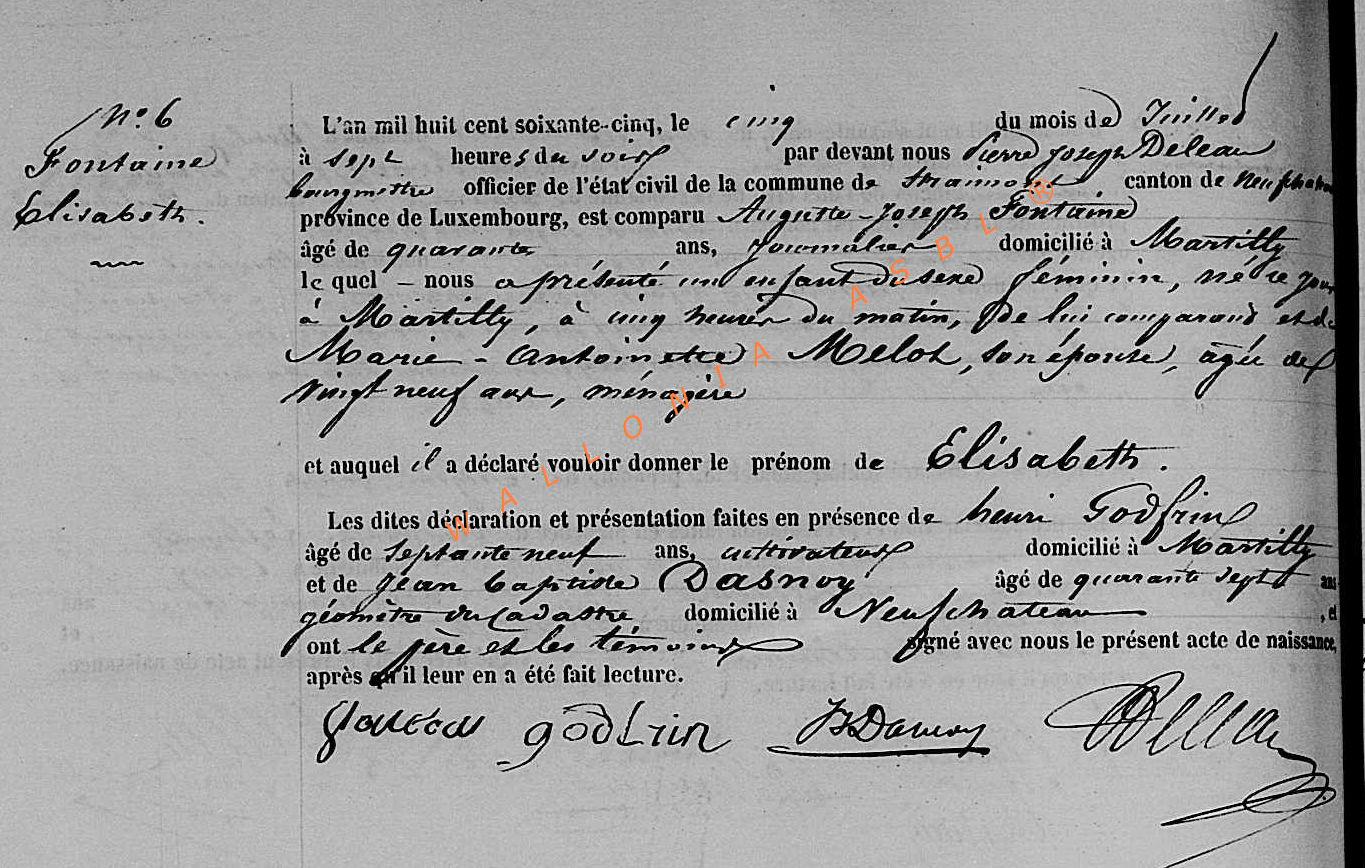 N° 6
Fontaine
Elisabeth.
L'an mil huit cent soixante-cinq, le cinq du mois de Juillet
à sept heures du soir par devant nous Pierre Joseph Deleau
bourgmestre officier de l'état civil de la commune de Straimont, canton de Neufchateau
province de Luxembourg, est comparu Auguste-Joseph Fontaine
âgé de quarante ans, journalier domicilié à Martilly
le quel – nous a présenté un enfant du sexe féminin, né ce jour
à Martilly, à cinq heures du matin, de lui comparant et de
Marie-Antoinette Melot, son épouse, âgée de
vingt neuf ans, ménagère
et auquel il a déclaré vouloir donner le prénom de Elisabeth.
Les dites déclaration et présentation faites en présence de henri Godfrin
âgé de septante neuf ans, cultivateur domicilié à Martilly
et de Jean Baptiste Dasnoy âgé de quarante sept ans
géomètre du Cadastre domicilié à Neufchateau, et
ont le père et les témoins signé avec nous le présent acte de naissance,
après qu'il leur en a été fait lecture.
godfrin JB Dasnoy Deleau
WALLONIA ASBL ®